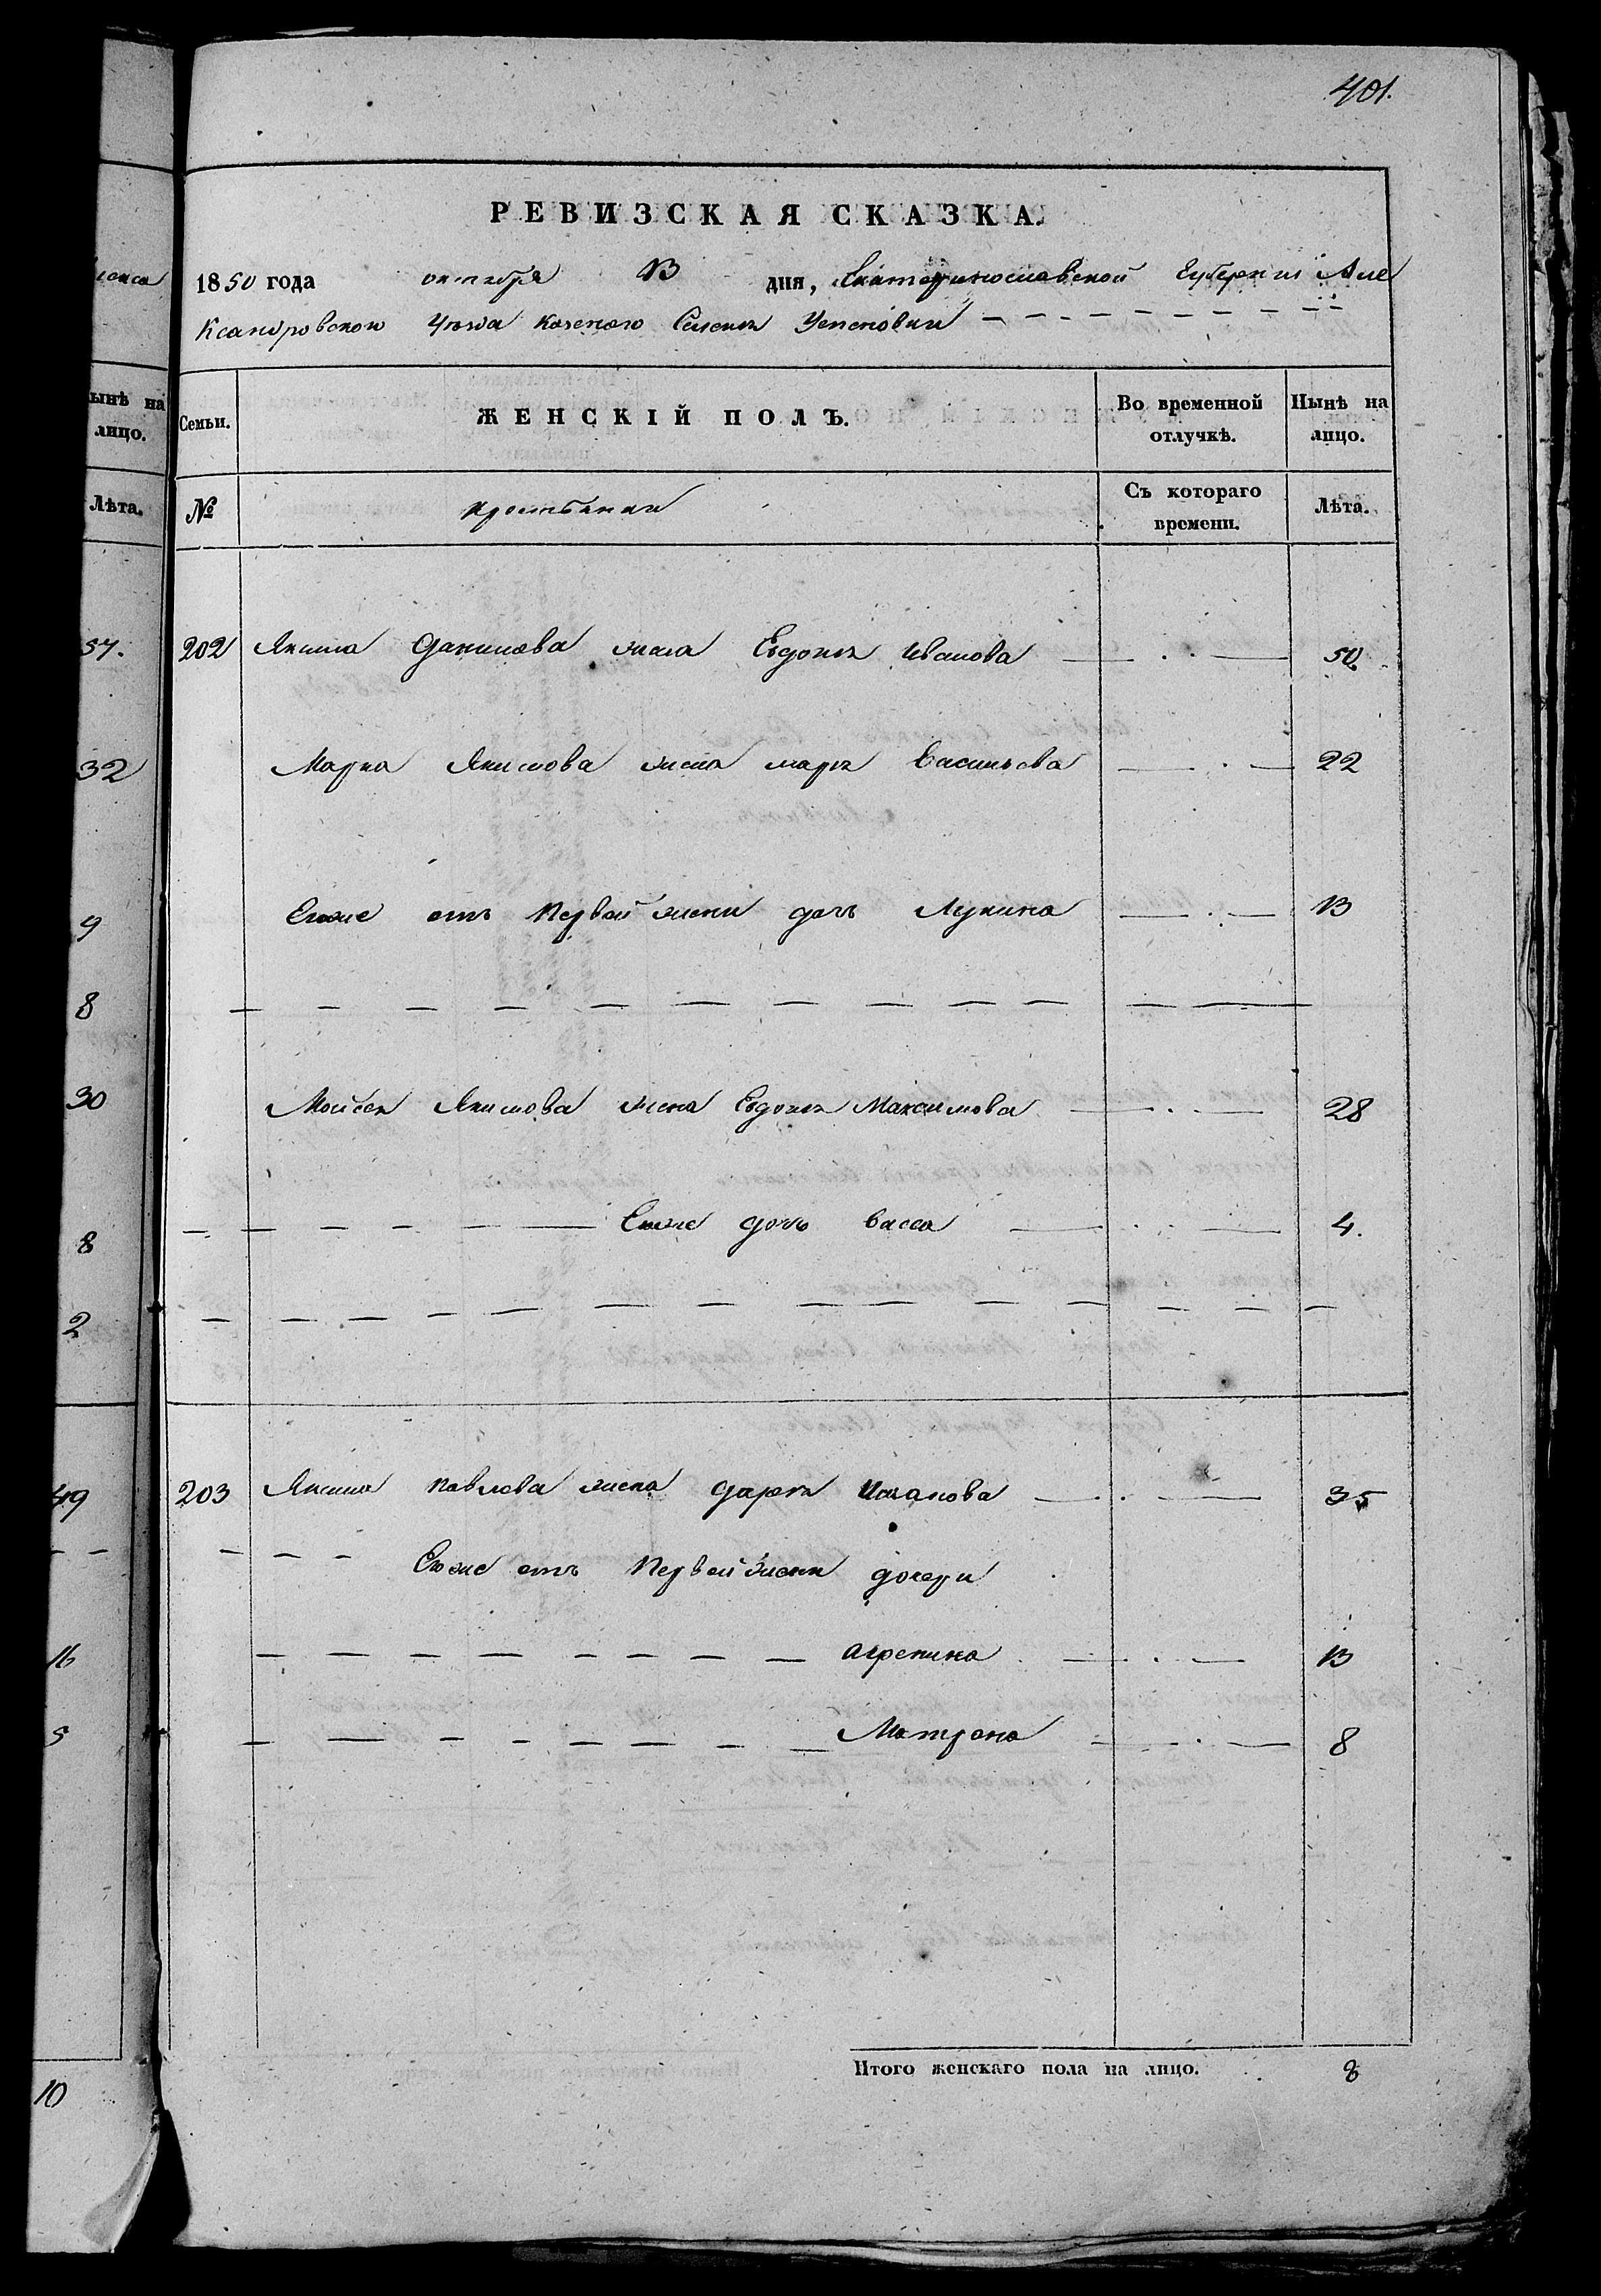 401.
РЕВИЗСКАЯ СКАЗКА.
1850 года октября 13 дня, Екатеринославской Губернии Але
ксандровского Уѣзда казенного Селенія Успеновки
ынѣ на лицо.
Лѣта.
Семьи.
ЖЕНСКІЙ ПОЛЪ.
Во временной отлучкѣ.
Нынѣ на лицо.
№
крестьянии
Съ котораго времени.
Лѣта.
202 Якима Данилова жена Евдокія Иванова 50
Марка Якимова жена марія Васильева 22
Егоже отъ Первой жены дочь Лукина 13
Моисея Якимова жена Евдокія Максимова 28
Егоже дочь васса 4.
203 Якима Павлова жена дарія 35
Егоже отъ Первой жены дочери
агрепина 13
Матрена 8
Итого женскаго пола на лицо. 8
37.
32
9
8
30
8
2
49
16
5
10